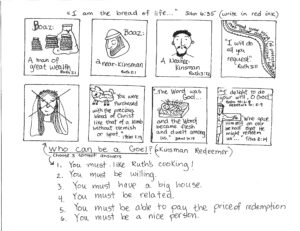 "I am the bread of life..." John 6:35 (write in red ink)
Boaz:
A man of
great wealth
Ruth 2:1
Boaz:
a near-Kinsman
Ruth 2:1
a
Kinsman
Ruth 3:12
"I will do
all you
request"
Ruth 3:11
You were
Purchased
with the precious
blood of Christ
like that of a lamb
without blemish
or spot"
The Word was
God...
and the Word
became flesh
and dwelt among
us."
I delight to do
your will, O God
Who gave
himself
redeem
us
Titus 2:14
Who can be a Goel?
Kinsman Redeemer
Choose 3 correct answers
1. You must like Ruth's cooking!
2. You must be willing.
3. You must have a big house.
4. You must be related.
5. You must be able to pay the price of redemption
6. You must be a nice person.